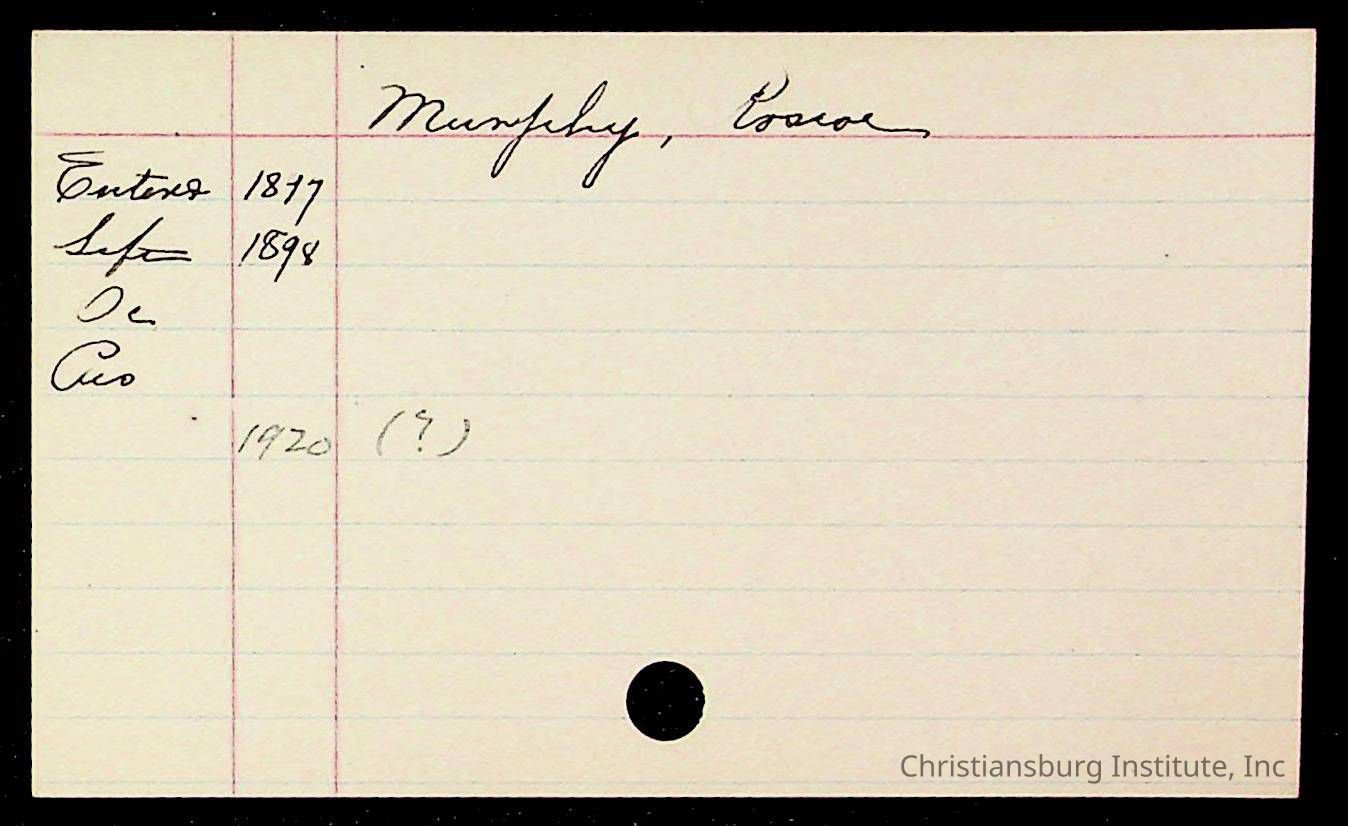 Murphy, Roscoe
Entered 1897
Left 1898
Oc
1920 (?)
Christiansburg Institute, Inc